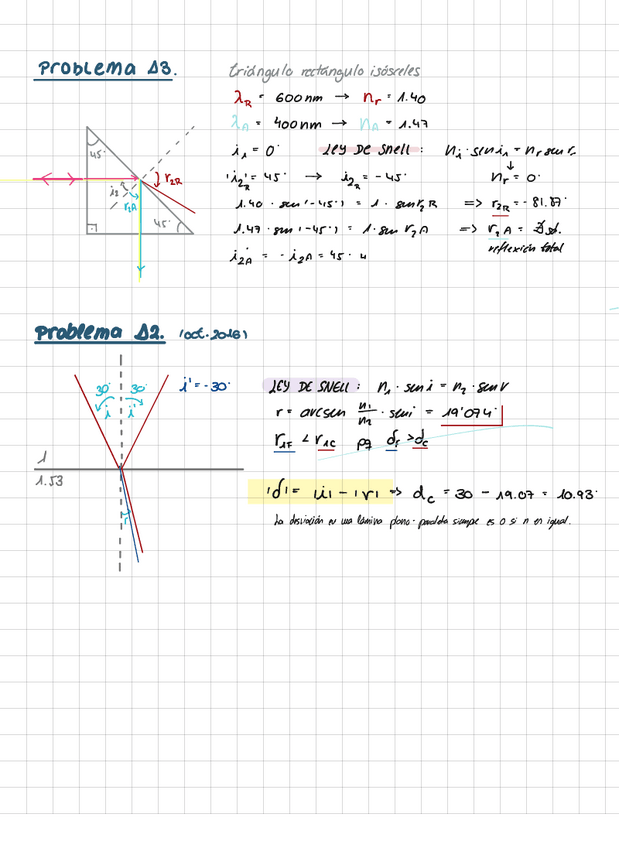 Problema 13.
triángulo rectángulo isósreles
λR = 600nm → nr = 1.40
λA = 400nm → nA = 1.47
i₁ = 0° LEY DE SNELL: ni · sen i₁ = nr sen r.
↓
|i₂R'| = 45° → i₂R = -45° nr = 0°
1.40 · sen(-45°) = 1 · sen r₂R => r₂R = -81.87°
1.47 · sen(-45°) = 1 · sen r₂A => r₂A = ∄ sol.
reflexión total
i₂A' = -i₂A = 45°
45°
r₂R
i₂
r₂A
45°
Problema 12. (oct. 2016)
30° 30° i' = -30°
i i'
LEY DE SNELL: n₁ · sen i = n₂ · sen r
r = arcsen n₁/n₂ · sen i = 19'074°
r₁F < r₁C pq δF > δC
1
1.53
r
|δ| = |i| - |r| => dC = 30 - 19.07 = 10.93°
La desviación en una lámina plano-paralela siempre es 0 si n en igual.